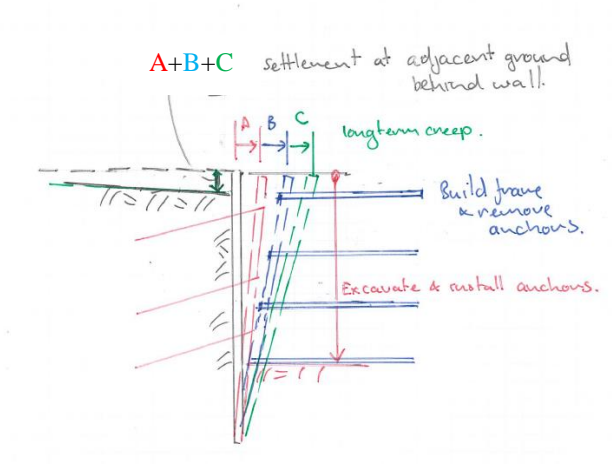 A+B+C settlement at adjacent ground
behind wall.
A B C longterm creep.
Build frame
& remove
anchors.
Excavate & install anchors.